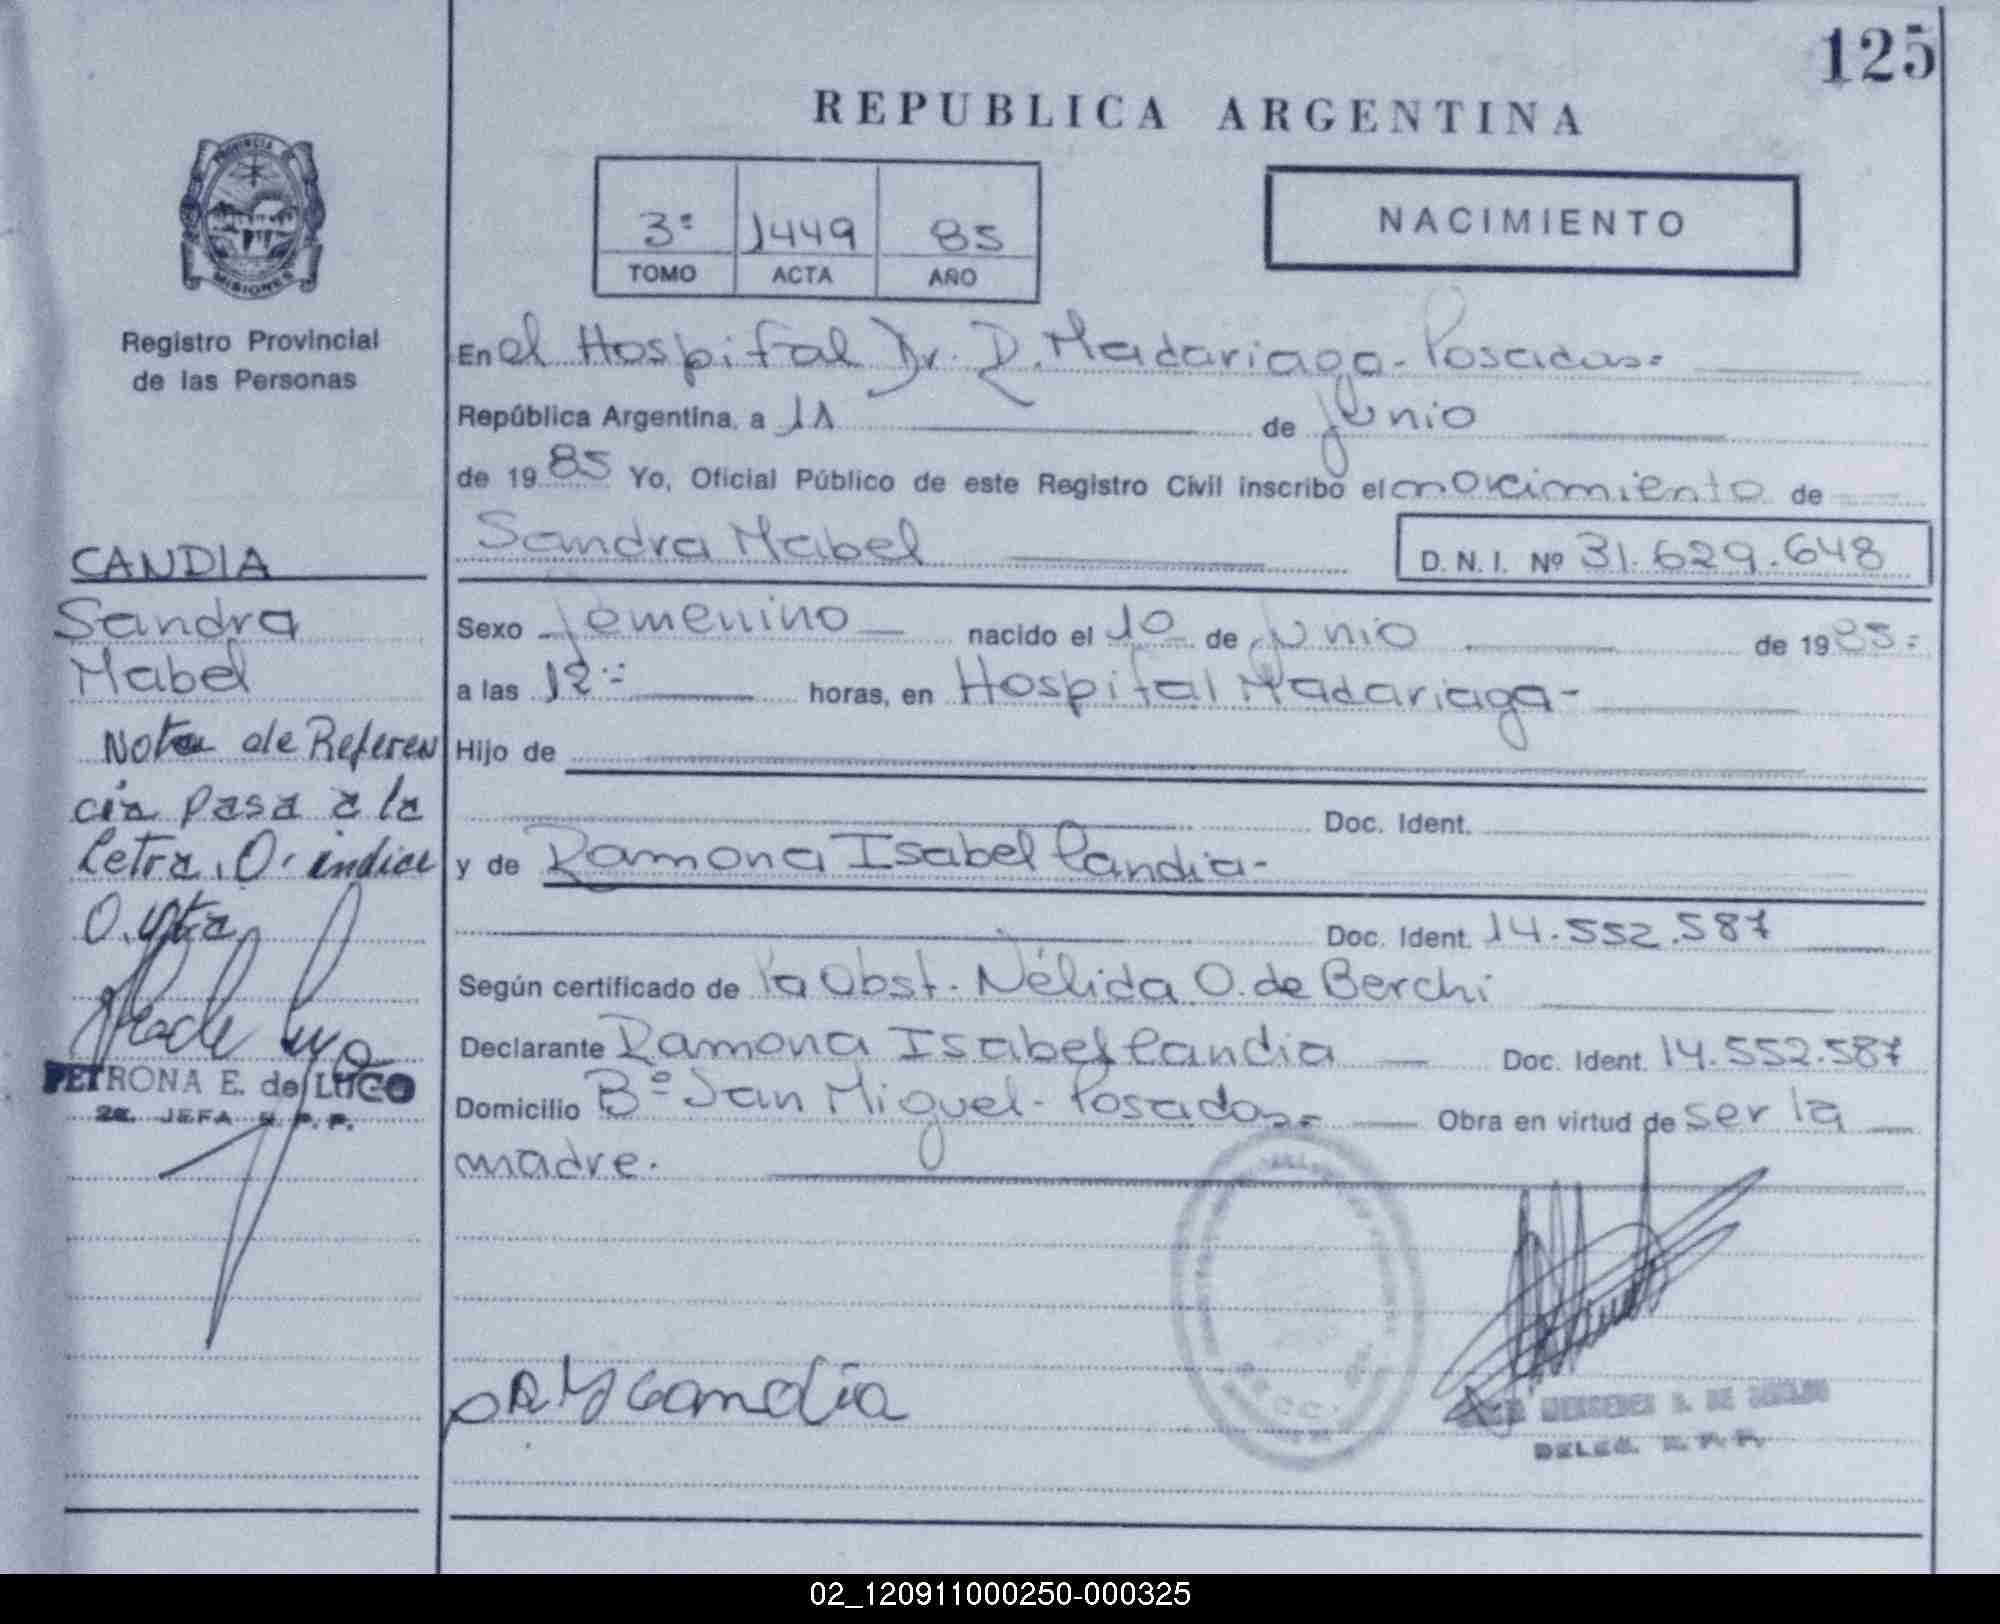 125
REPUBLICA ARGENTINA
PROVINCIA DE
MISIONES
Registro Provincial
de las Personas
3º 1449 85
TOMO ACTA AÑO
NACIMIENTO
En el Hospital Dr. R. Madariaga - Posadas.=
República Argentina, a 11 de junio
de 19 85 Yo, Oficial Público de este Registro Civil inscribo el nacimiento de
Sandra Mabel
D. N. I. Nº 31.629.648
Sexo femenino nacido el 10 de junio de 19 85.=
a las 12.= horas, en Hospital Madariaga-
Hijo de
Doc. Ident.
y de Ramona Isabel Candia-
Doc. Ident. 14.552.587
Según certificado de la Obst. Nélida O. de Berchi
Declarante Ramona Isabel Candia Doc. Ident. 14.552.587
Domicilio Bº San Miguel - Posadas.= Obra en virtud de ser la
madre.
CANDIA
Sandra
Mabel
Nota de Referen
cia pasa a la
Letra O. indice
PETRONA E. de LUGO
2a. JEFA R. P. P.
Candia
MERCEDES
DELEG. R. P. P.
02_120911000250-000325